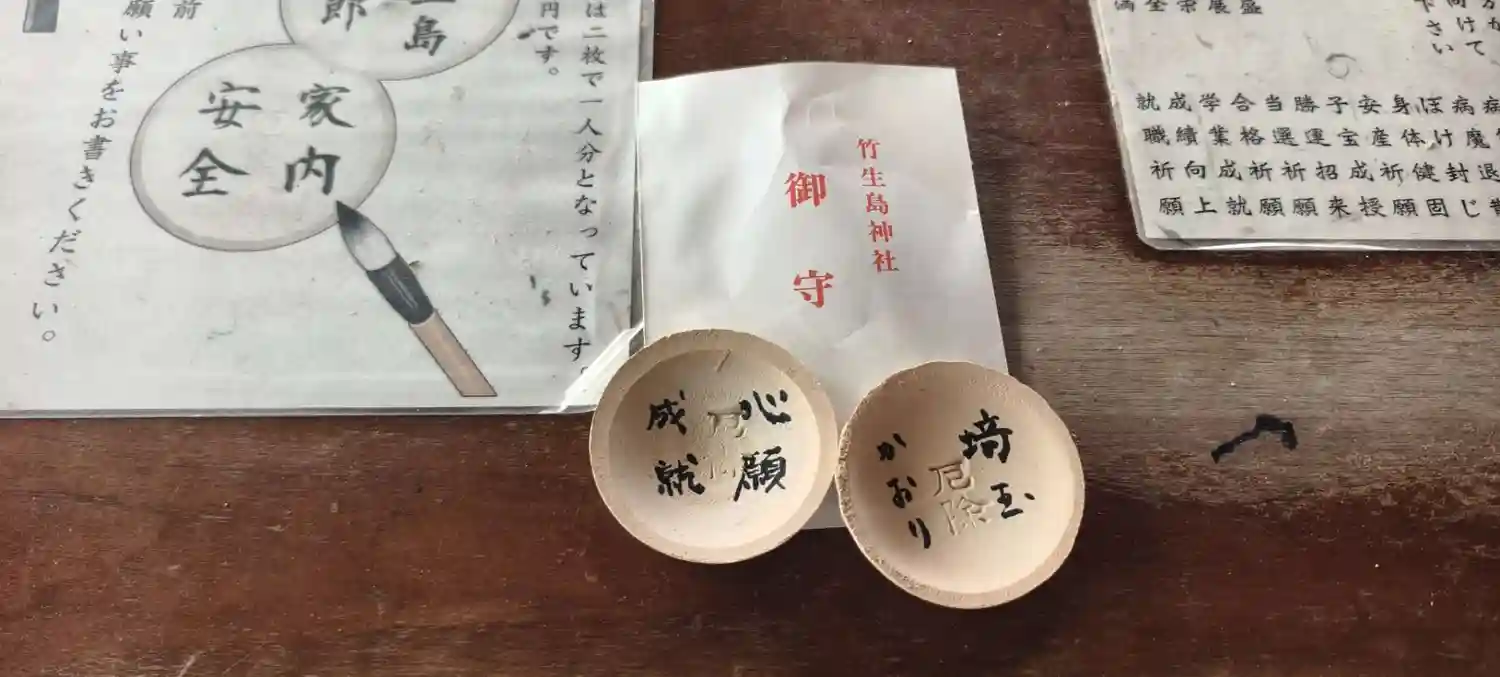 は二枚で一人分となっています。
円です。
島
郎
家内
安全
前
願い事をお書きください。
竹生島神社
御守
心願
成就
厄除
埼玉
かおり
向けて
下さい
病魔退散
ぼけ封じ
身体健固
安産祈願
子宝成授
勝運招来
当選祈願
合格祈願
学業成就
成績向上
就職祈願